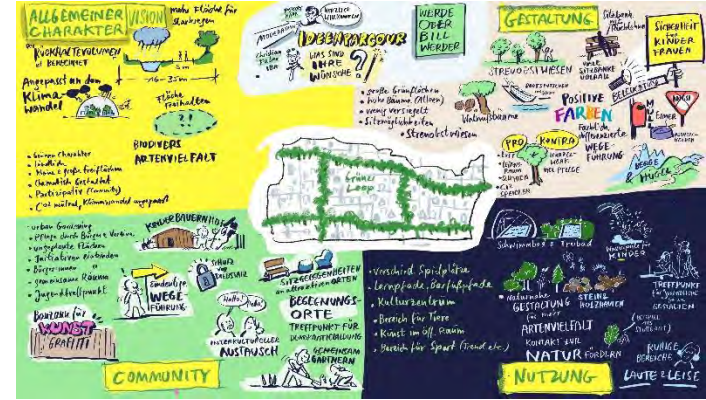 ALLGEMEINER
CHARAKTER
VISION
mehr Fläche für
Starkregen
RÜCKHALTEVOLUMEN
BERECHNET
5m
16-35m
Angepasst an den
Klima-
wandel
Fläche
Freihalten
BIODIVERS
ARTENVIELFALT
• Grüner Charakter
• ländlich
• kleine & große Freiflächen
• thematisch gestaltet
• Partizipativ (Community)
• CO2 neutral, Klimawandel angepasst
MODERATION
HERZLICH
WILLKOMMEN
IDEENPARCOUR
WAS SIND
IHRE
WÜNSCHE?
WERDE
ODER
BILL
WERDER
• große Grünflächen
• hohe Bäume (Alleen)
• wenig versiegelt
• Sitzmöglichkeiten
• Streuobstwiesen
GESTALTUNG
STREUOBSTWIESEN
Walnussbäume
Sitzbank
viele
SITZBÄNKE
ÜBERALL
SICHERHEIT
für
KINDER
FRAUEN
BELEUCHTUNG
POSITIVE
FARBEN
Farblich
differenzierte
WEGE-
FÜHRUNG
PRO
KONTRA
CO2
SPEICHER
PFLEGE
MÜLL
EIMER
BERGE
& HÜGEL
Grüner
Loop
• urban Gardening
• Pflege durch Bürger & Vereine
• ungeplante Flächen
• Initiativen einbinden
• Bürgerinnen
• gemeinsame Räume
• Jugendtreffpunkt
KINDERBAUERNHOF
Eindeutige
WEGE
FÜHRUNG
SCHUTZ
vor
VANDALISMUS
BAUZÄUNE für
KUNST
GRAFFITI
Hallo!
INTERKULTURELLER
AUSTAUSCH
SITZGELEGENHEITEN
an attraktiven ORTEN
BEGEGNUNGS-
ORTE
TREFFPUNKT FÜR
DEMOKRATIEBILDUNG
GEMEINSAM
GÄRTNERN
COMMUNITY
• Verschied. Spielplätze
• Lernpfade, Barfußpfade
• Kulturzentrum
• Bereich für Tiere
• Kunst im öff. Raum
• Bereich für Sport (Trend etc.)
Schwimmbad & Freibad
Wasserspiele für
KINDER
Naturnahe
GESTALTUNG
für mehr
ARTENVIELFALT
KONTAKT ZUR
NATUR FÖRDERN
STEIN &
HOLZHAUFEN
TREFFPUNKT
für JUGENDLICHE
GESTALTEN
RUHIGE
BEREICHE
LAUTE & LEISE
NUTZUNG